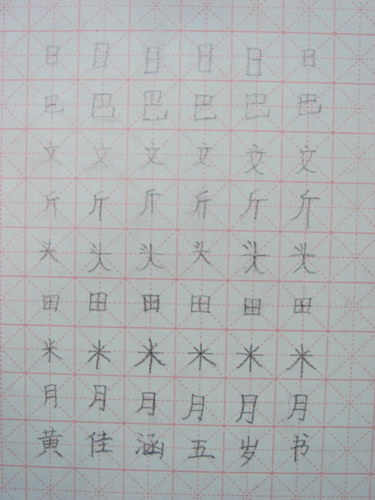 日日日日日日
巴巴巴巴巴巴
文文文文文文
斤斤斤斤斤斤
头头头头头头
田田田田田田
米米米米米米
月月月月月月
黄佳涵五岁书